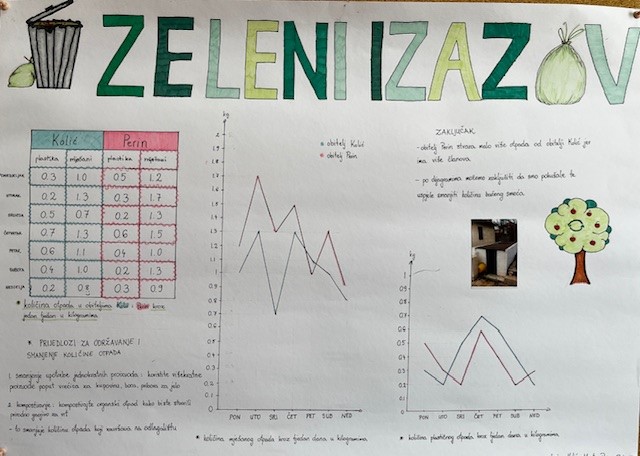 ZELENI IZAZOV
Kolić Perin
plastika miješani plastika miješani
PONEDJELJAK 0.3 1.0 0.5 1.2
UTORAK 0.2 1.3 0.3 1.7
SRIJEDA 0.5 0.7 0.2 1.3
ČETVRTAK 0.7 1.3 0.6 1.5
PETAK 0.6 1.1 0.4 1.0
SUBOTA 0.4 1.0 0.2 1.3
NEDJELJA 0.2 0.8 0.3 0.9
* količina otpada u obiteljima Kolić i Perin kroz
jedan tjedan u kilogramima
* PRIJEDLOZI ZA ODRŽAVANJE I
SMANJENJE KOLIČINE OTPADA
1. smanjenje uporabe jednokratnih proizvoda: koristite višekratne
proizvode poput vrećica za kupovinu, boca, pribora za jelo
2. kompostiranje: kompostirajte organski otpad kako biste stvorili
prirodno gnojivo za vrt
- to smanjuje količinu otpada koji završava na odlagalištu
kg
2
1.9
1.8
1.7
1.6
1.5
1.4
1.3
1.2
1.1
1
0.9
0.8
0.7
0.6
0.5
0.4
0.3
0.2
0.1
0
PON UTO SRI ČET PET SUB NED
* količina miješanog otpada kroz tjedan dana u kilogramima
obitelj Kolić
obitelj Perin
ZAKLJUČAK
- obitelj Perin stvara malo više otpada od obitelji Kolić jer
ima više članova.
- po dijagramima možemo zaključiti da smo pokušale te
uspjele smanjiti količinu bačenog smeća.
kg
1
0.9
0.8
0.7
0.6
0.5
0.4
0.3
0.2
0.1
0
PON UTO SRI ČET PET SUB NED
* količina plastičnog otpada kroz tjedan dana u kilogramima